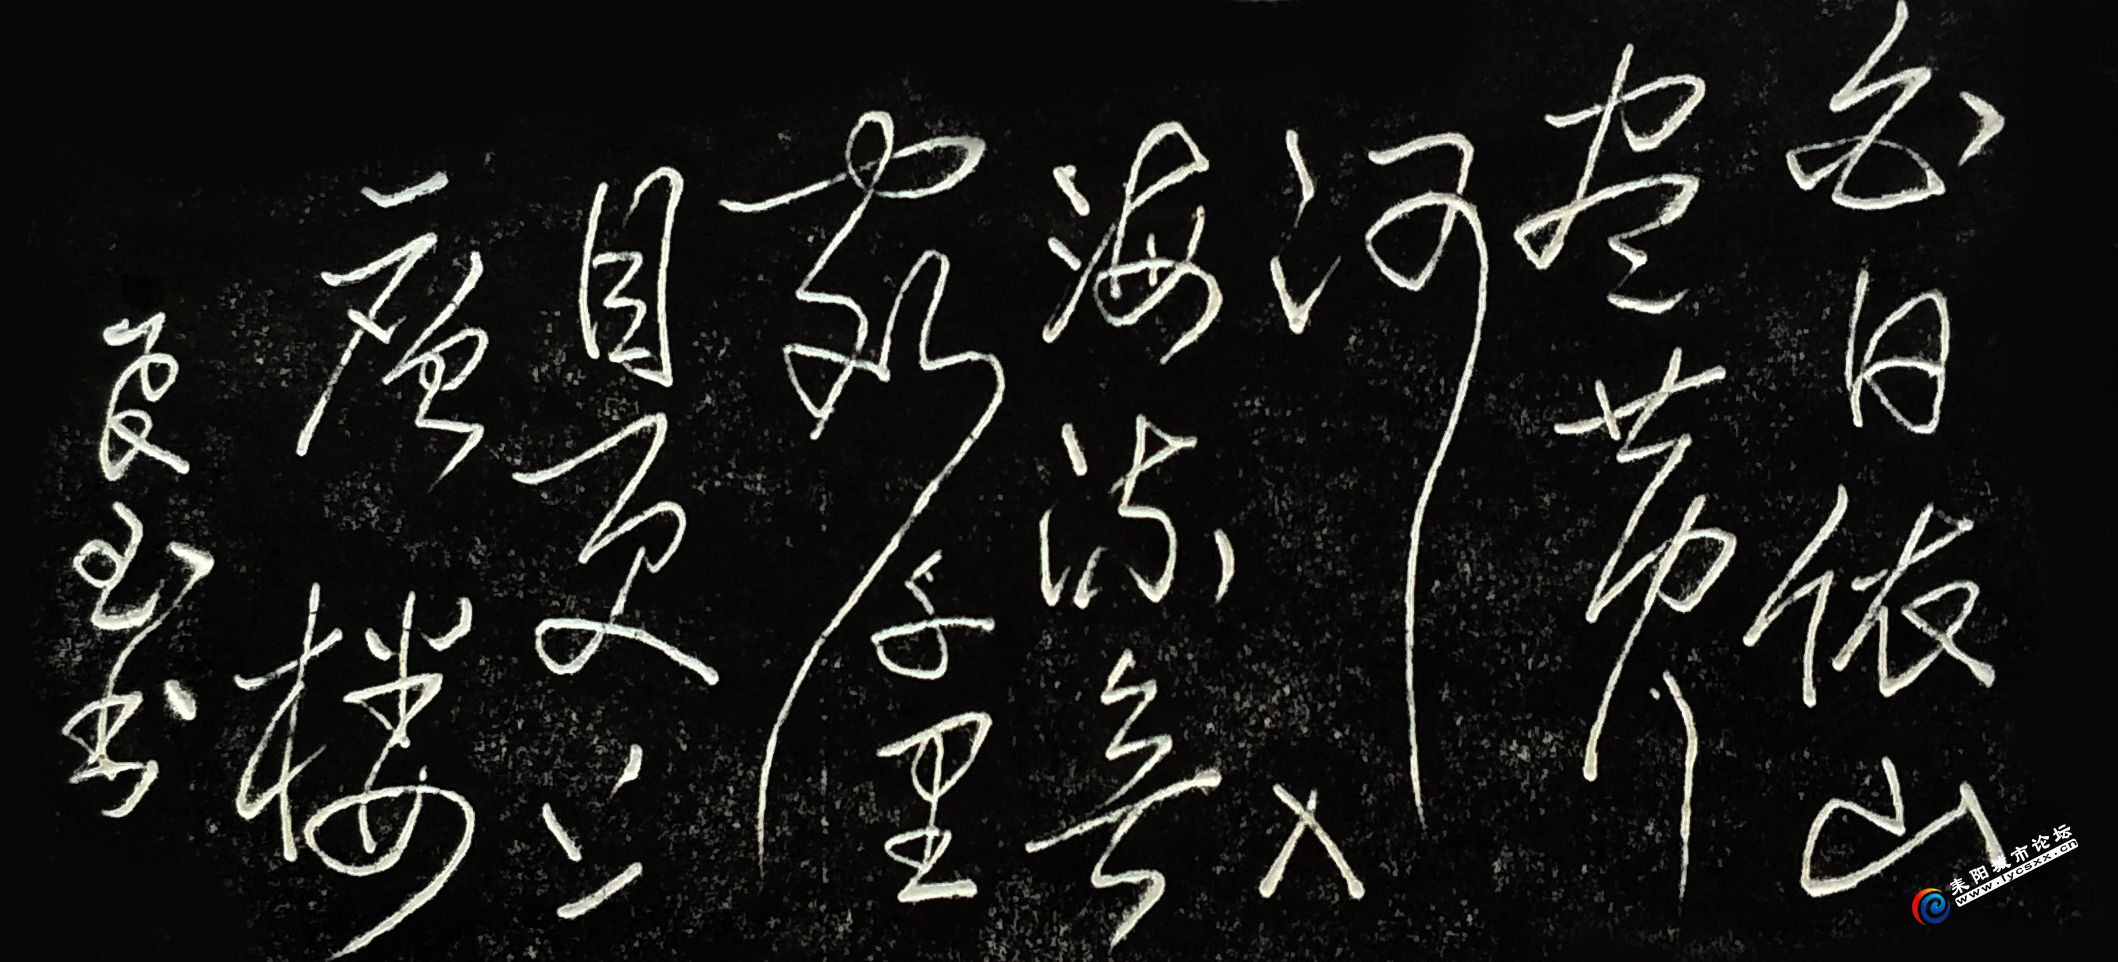 白日依山
盡黄
河入
海流欲
窮千里
目更上
一層樓
良玉书
耒阳城市论坛
www.lycsxx.cn